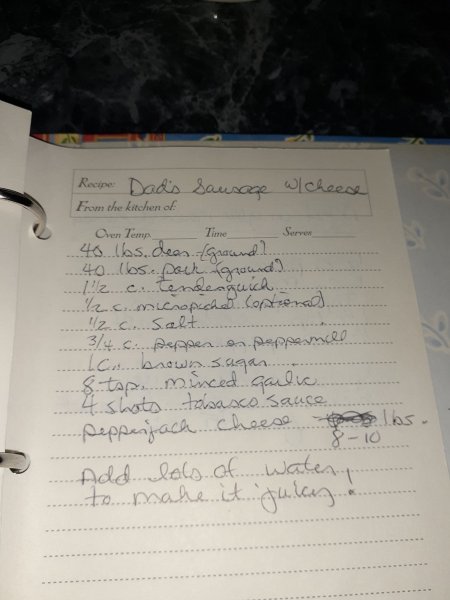 Recipe: Dad's Sausage w/cheese
From the kitchen of:
Oven Temp. Time Serves
40 lbs. deer (ground)
40 lbs. pork (ground)
1 1/2 c. tenderquick
1/2 c. micropickel (optional)
1/2 c. salt
3/4 c. pepper or peppermill
1 c. brown sugar
8 tsp. minced garlic
4 shots tobasco sauce
pepperjack cheese lbs.
8-10
Add lots of water,
to make it juicy!